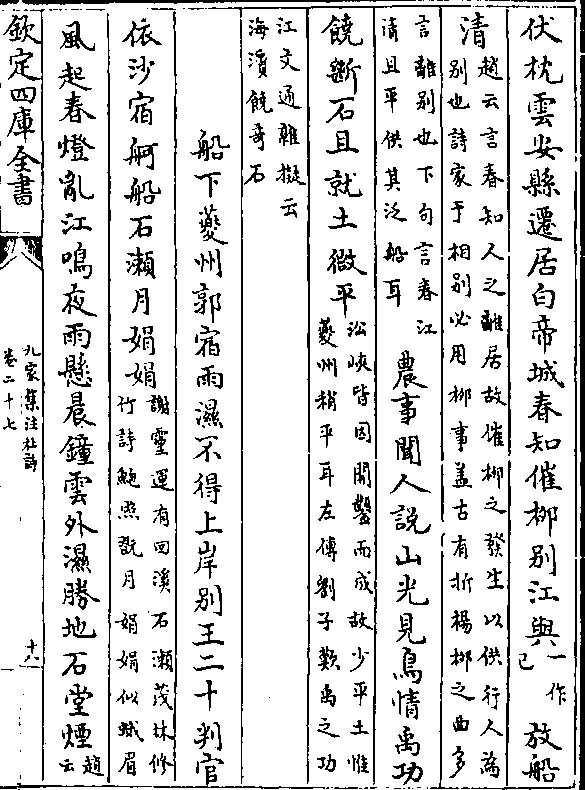 伏枕雲安縣遷居白帝城春知催栁别江與一作已放船
清趙云言春知人之離居故催栁之發生以供行人為别也詩家于相别必用栁事盖古有折楊栁之曲多
言離别也下句言春江清且平供其泛船耳農事聞人說山光見鳥情禹功
饒斷石且就土微平㳂峽皆因開鑿而成故少平土惟夔州稍平耳左傳劉子歎禹之功
江文通雜擬云海濱饒奇石
船下夔州郭宿雨濕不得上岸别王二十判官
依沙宿舸船石瀬月娟娟謝靈運有回溪石瀬茂林修竹詩鮑照翫月娟娟似蛾眉
風起春燈亂江鳴夜雨懸晨鐘雲外濕勝地石堂煙趙云
欽定四庫全書
九家集注杜詩
卷二十七
十八